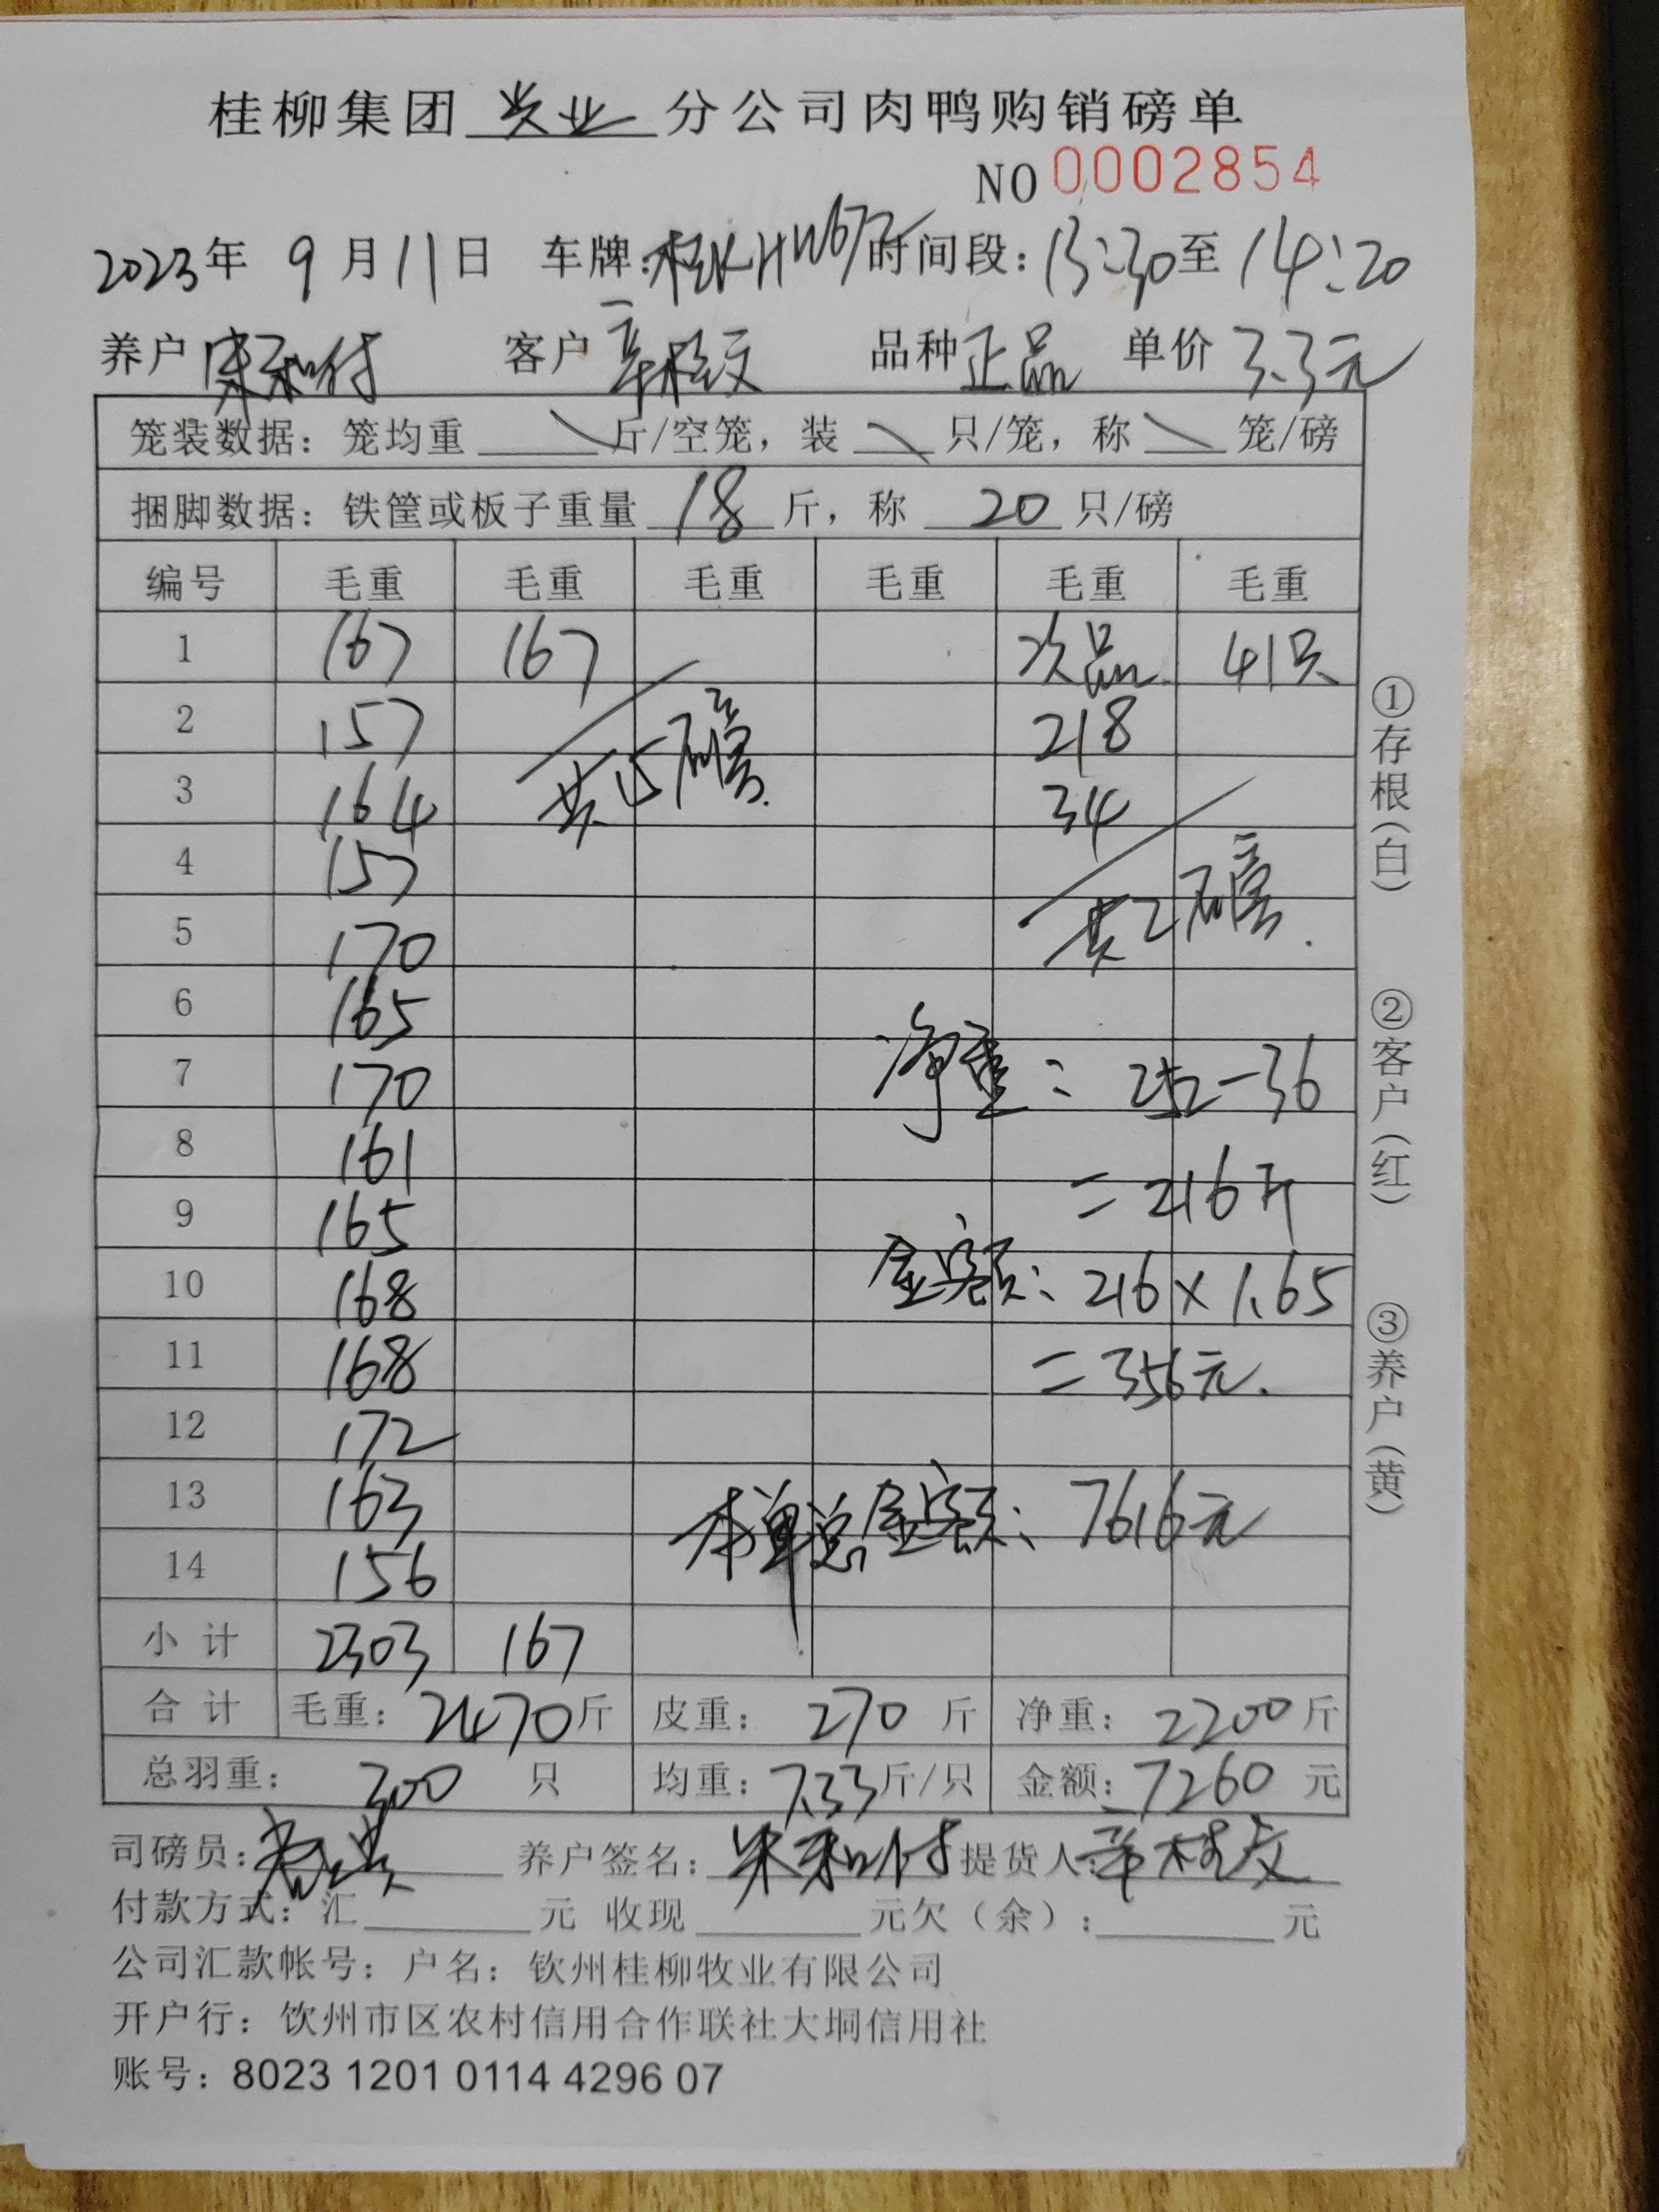 桂柳集团 牧业 分公司肉鸭购销磅单
NO 0002854
2023年 9月11日 车牌: 时间段: 13:30至 14:20
养户 客户 章桂文 品种 正品 单价 3.3元
笼装数据: 笼均重 \ 斤/空笼, 装 \ 只/笼, 称 \ 笼/磅
捆脚数据: 铁筐或板子重量 18 斤, 称 20 只/磅
编号 毛重 毛重 毛重 毛重 毛重 毛重
1 167 167 次品 41只
2 157 218
共15磅.
3 164 34
4 157
共2磅.
5 170
6 165
7 170 净重: 252-36
8 161
=216斤
9 165
10 168 金额: 216×1.65
11 168 =356元.
12 172
13 163 本单总金额: 7616元
14 156
小计 2303 167
合计 毛重: 2470斤 皮重: 270 斤 净重: 2200斤
总羽重: 300 只 均重: 7.33斤/只 金额: 7260 元
司磅员: 养户签名: 提货人: 章桂文
付款方式: 汇 元 收现 元欠(余): 元
公司汇款帐号: 户名: 钦州桂柳牧业有限公司
开户行: 钦州市区农村信用合作联社大垌信用社
账号: 8023 1201 0114 4296 07
①存根(白)
②客户(红)
③养户(黄)